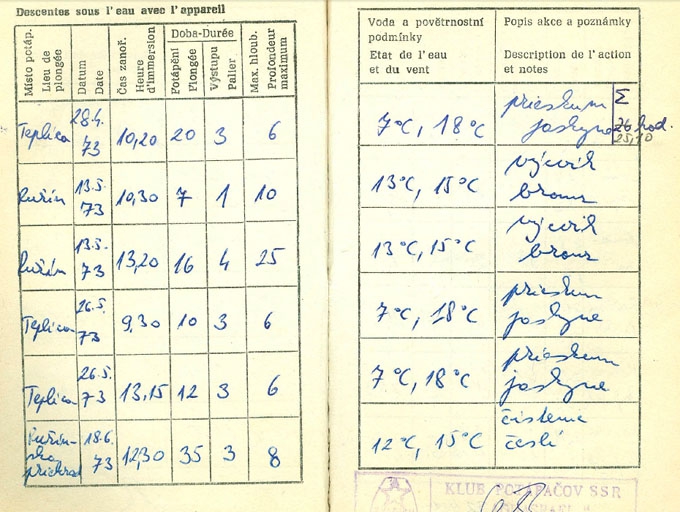 Descentes sous l'eau avec l'appareil
Místo potáp.
Lieu de
plongée
Datum
Date
Čas zanoř.
Heure
d'immersion
Doba-Durée
Potápění
Plongée
Výstupu
Palier
Max. hloub.
Profondeur
maximum
Teplica 28.4. 73 10,20 20 3 6
Ružín 13.5. 73 10,30 7 1 10
Ružín 13.5. 73 13,20 16 4 25
Teplica 26.5. 73 9,30 10 3 6
Teplica 26.5. 73 13,15 12 3 6
Ružín-
ska
priehrad 18.6. 73 12,30 35 3 8
Voda a povětrnostní
podmínky
Etat de l'eau
et du vent
Popis akce a poznámky
Description de l'action
et notes
7°C, 18°C prieskum
jaskyne
Σ
26 hod.
25,10
13°C, 15°C výcvik
bronz
13°C, 15°C výcvik
bronz
7°C, 18°C prieskum
jaskyne
7°C, 18°C prieskum
jaskyne
12°C, 15°C čistenie
česlí
KLUB POTÁPAČOV SSR